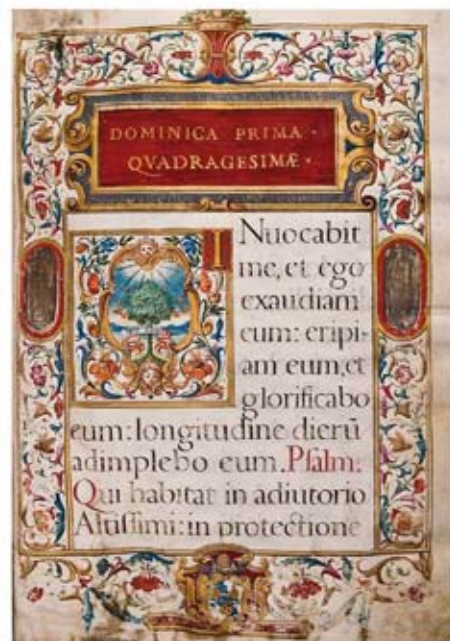 DOMINICA PRIMA ·
QVADRAGESIMÆ ·
INuocabit
me, et ego
exaudiam
eum: eripi-
am eum, et
glorificabo
eum: longitudine dierũ
adimplebo eum. Psalm:
Qui habitat in adiutorio
Altissimi: in protectione